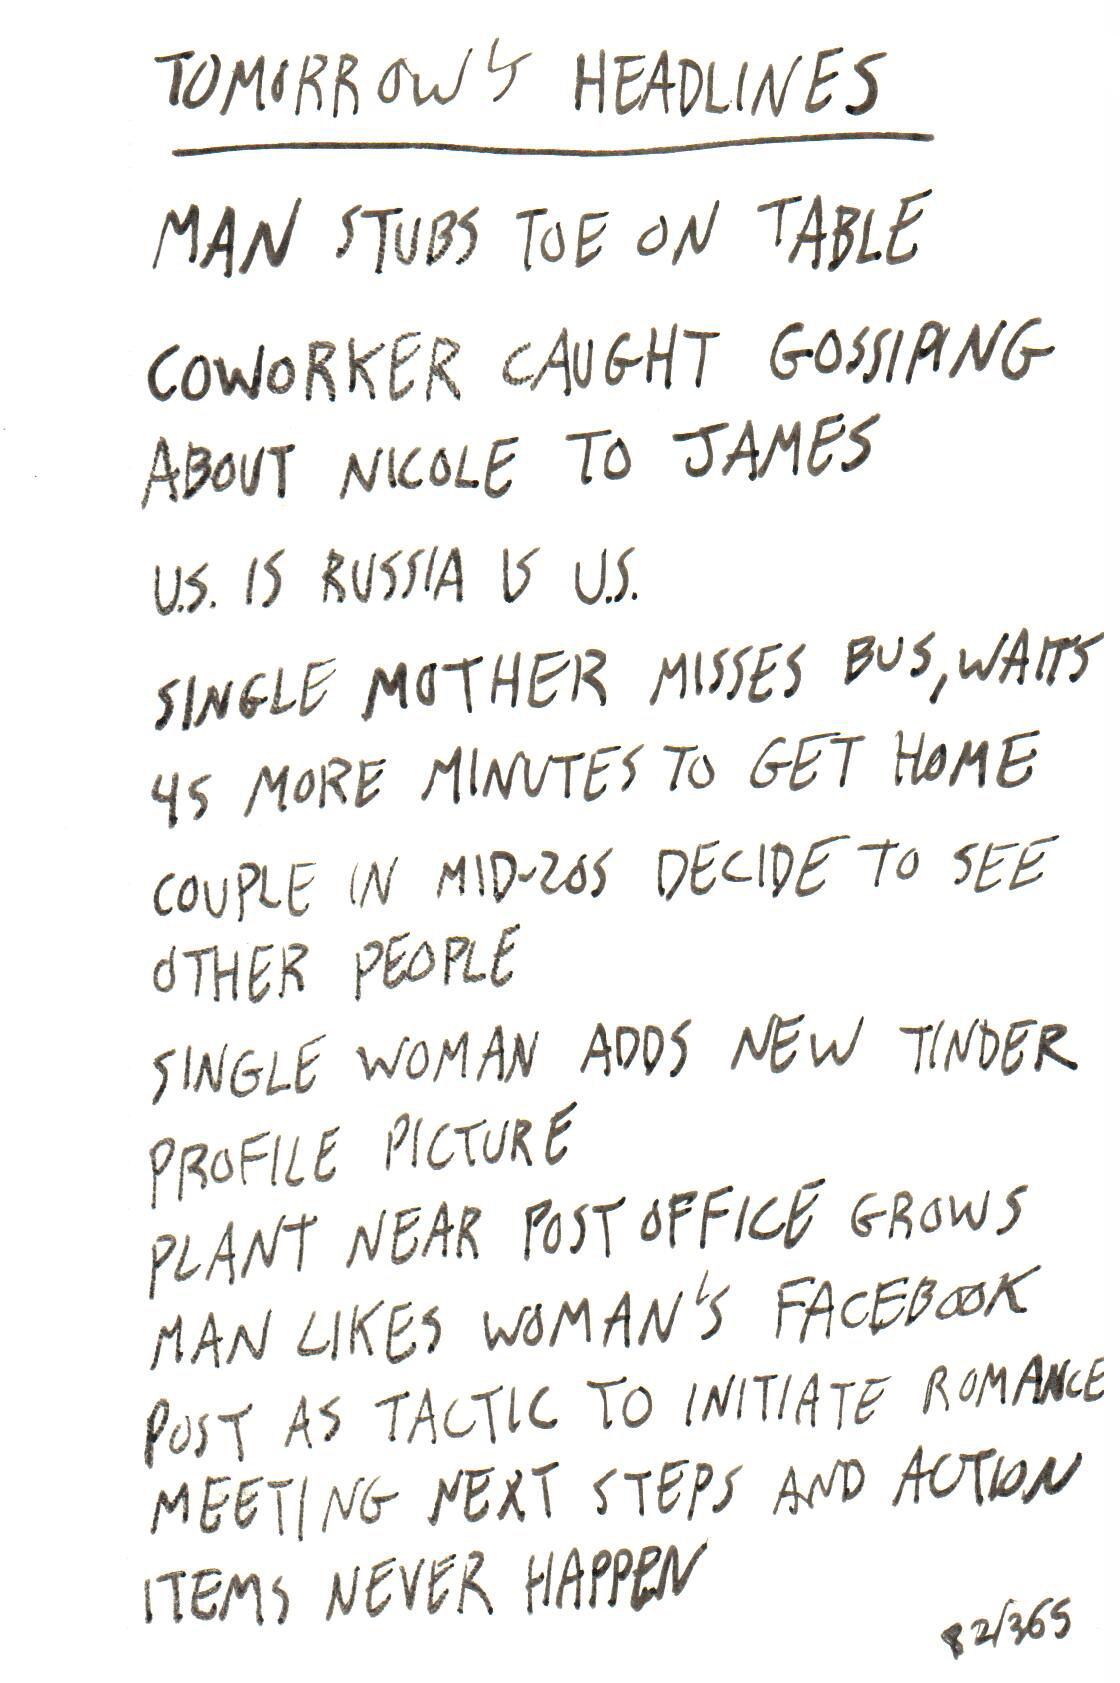 TOMORROW'S HEADLINES
MAN STUBS TOE ON TABLE
COWORKER CAUGHT GOSSIPING
ABOUT NICOLE TO JAMES
U.S. IS RUSSIA IS U.S.
SINGLE MOTHER MISSES BUS, WAITS
45 MORE MINUTES TO GET HOME
COUPLE IN MID-20S DECIDE TO SEE
OTHER PEOPLE
SINGLE WOMAN ADDS NEW TINDER
PROFILE PICTURE
PLANT NEAR POST OFFICE GROWS
MAN LIKES WOMAN'S FACEBOOK
POST AS TACTIC TO INITIATE ROMANCE
MEETING NEXT STEPS AND ACTION
ITEMS NEVER HAPPEN
82/365